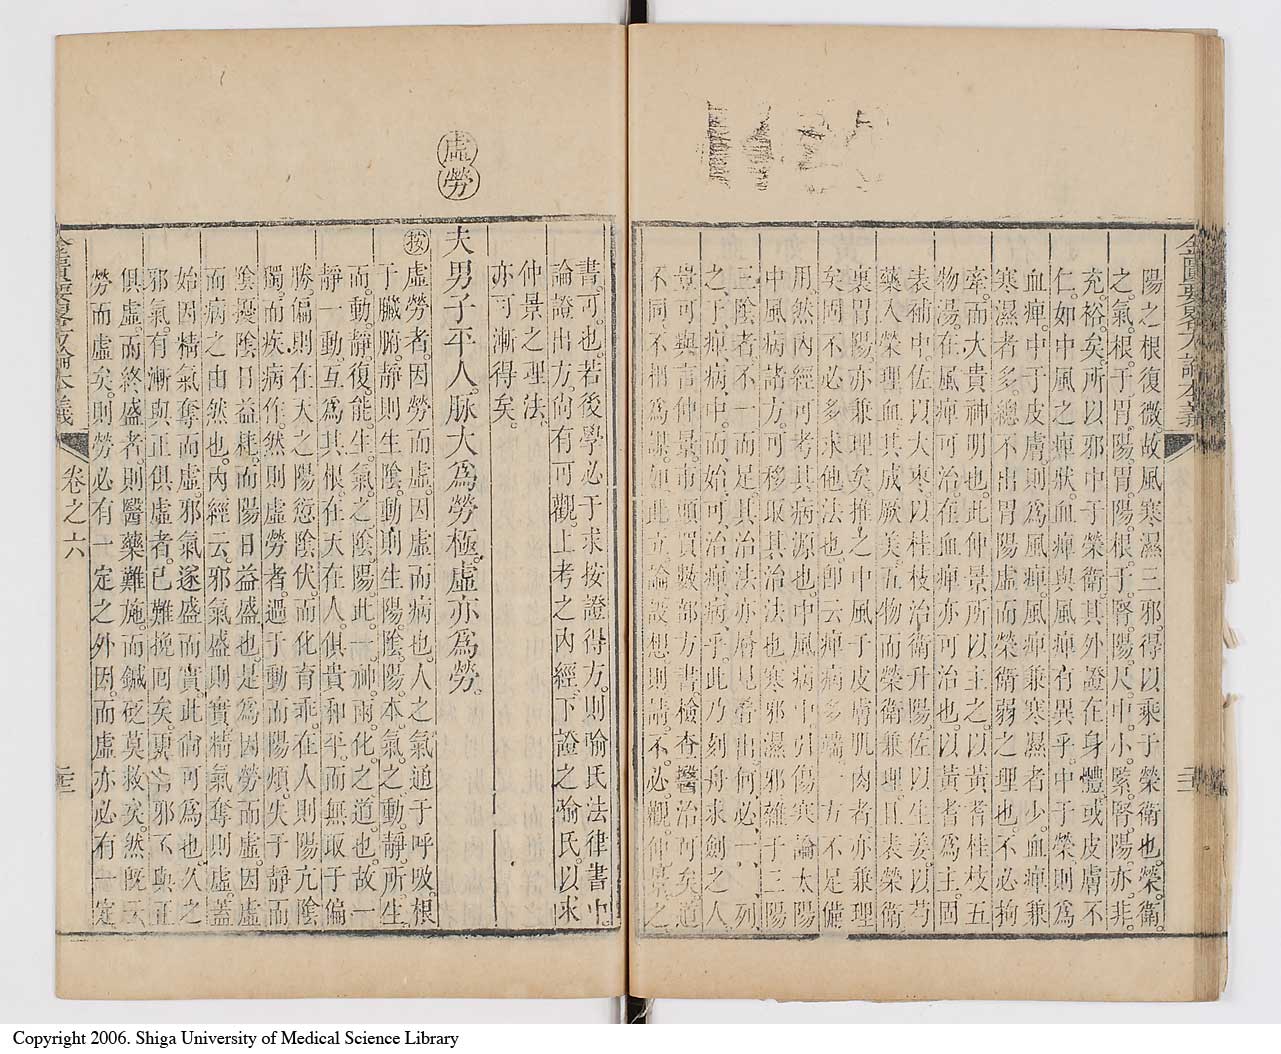 金匱要畧方論本義
陽之根復微故風寒濕三邪得以乘于榮衛也榮衛
之氣根于胃陽胃陽根于腎陽尺中小緊腎陽亦非
充裕矣所以邪中于榮衛其外證在身體或皮膚不
仁如中風之痺狀血痺與風痺有異乎中于榮則為
血痺中于皮膚則為風痺風痺兼寒濕者少血痺兼
寒濕者多總不出胃陽虛而榮衛弱之理也不必拘
牽而大貴神明也此仲景所以主之以黃耆桂枝五
物湯在風痺可治在血痺亦可治也以黃耆為主固
表補中佐以大棗以桂枝治衛升陽佐以生姜以芍
藥入榮理血共成厥美五物而榮衛兼理且表榮衛
裏胃陽亦兼理矣推之中風于皮膚肌肉者亦兼理
矣固不必多求他法也卽云痺病多端一方不足備
用然內經可考其病源也中風病中引傷寒論太陽
中風病諸方可移取其治法也寒邪濕邪雜于三陽
三陰者不一而足其治法亦層見疊出何必一一列
之于痺病中而始可治痺病乎此乃刻舟求劍之人
不同不揣為謀如此立論設想則請不必觀仲景之
書可也若後學必于求按證得方則喻氏法律書中
論證出方尙有可觀上考之內經下證之喻氏以求
仲景之理法
亦可漸得矣
虛勞
夫男子平人脉大為勞極虛亦為勞
按虛勞者因勞而虛因虛而病也人之氣通于呼吸根
于臟腑靜則生陰動則生陽陰陽本氣之動靜所生
而動靜復能生氣之陰陽此一神兩化之道也故一
靜一動互為其根在天在人俱貴和平而無取于偏
勝偏則在天之陽愆陰伏而化育乖在人則陽亢陰
獨而疾病作然則虛勞者過于動而陽煩失于靜而
陰擾陰日益耗而陽日益盛也是為因勞而虛因虛
而病之由然也內經云邪氣盛則實精氣奪則虛蓋
始因精氣奪而虛邪氣遂盛而實此尙可為也久之
邪氣有漸與正俱虛者已難挽回矣更有邪不與正
俱虛而終盛者則醫藥難施而鍼砭莫救矣然旣云
勞而虛矣則勞必有一定之外因而虛亦必有一定
金匱要畧方論本義
卷之六